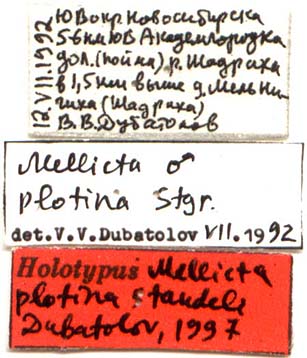 Ю Вокр Новосибирска
5-6 км ЮВ Академгородка
дол.(пойма) р. Шадриха
в 1,5 км выше д. Мельни-
чиха (Шадриха)
В.В.Дубатолов
12.VII.1992
Mellicta ♂
plotina Stgr.
det.V.V.Dubatolov VII.1992
Holotypus Mellicta
plotina standeli
Dubatolov, 1997